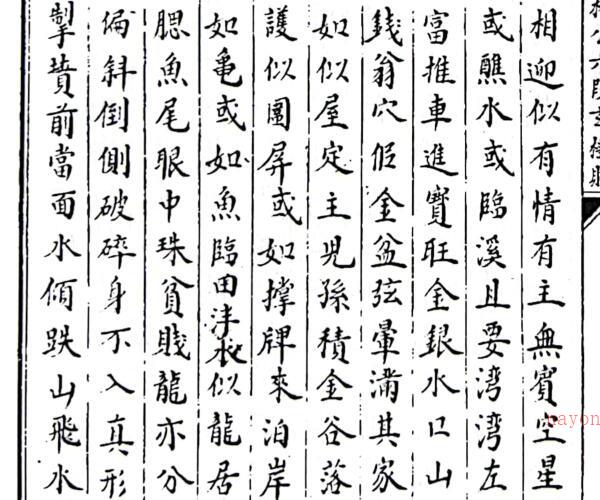 相迎似有情有主無賓空星
或醮水或臨溪且要湾湾左
富推車進寳旺金銀水口山
錢翁穴假金盆弦暈滿其家
如似屋定主児孫積金谷落
護似圍屏或如撐牌來泊岸
如亀或如魚臨田洋水似龍居
腮魚尾眼中珠貧賤龍亦分
偏斜倒側破碎身不入真形
掣賛前當面水傾跌山飛水
nayon